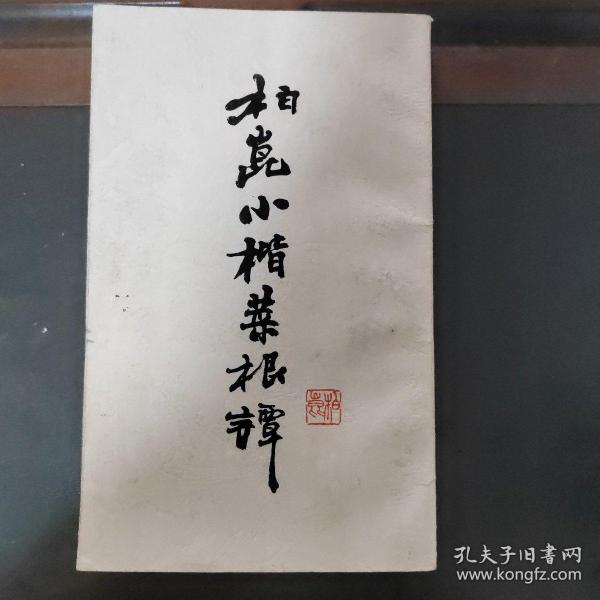 柏崑小楷菜根譚
孔夫子旧书网
www.kongfz.com